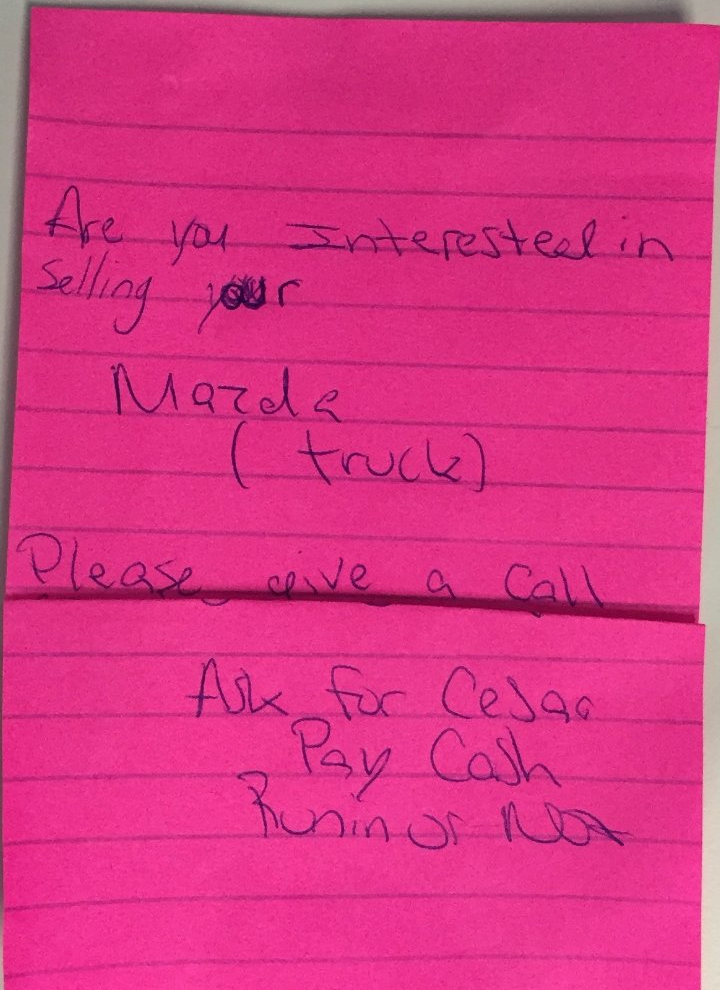 Are you Interested in
Selling your
Mazda
( truck)
Please give a Call
Ask for Cesar
Pay Cash
Runin or Not